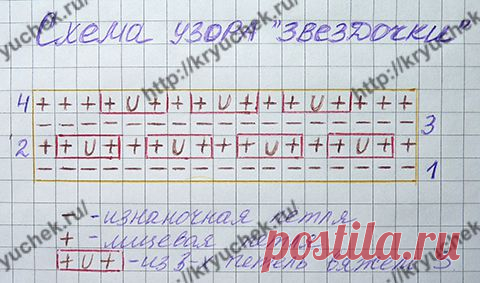 Схема узора "Звездочки"
4 + + + + U + + + + U + + + + U + + + +
– – – – – – – – – – – – – – – – – – – 3
2 + + U + + + + U + + + + U + + + + U + +
– – – – – – – – – – – – – – – – – – – 1
– - изнаночная петля
+ - лицевая петля
+ U + - из 3-х петель вяжем 3
http://kryuchek.ru/
Postila.ru